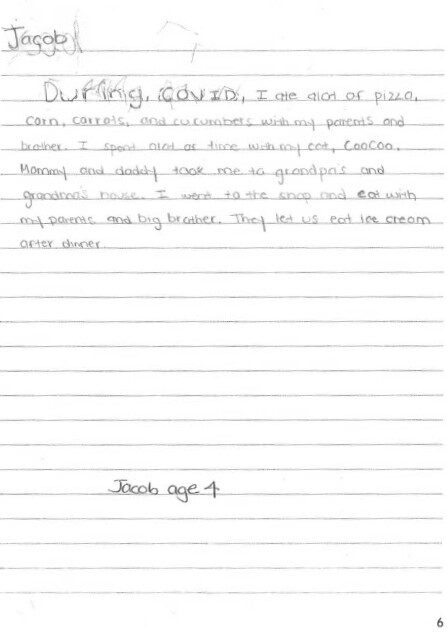 Jacob
During, COVID, I ate alot of pizza,
corn, carrots, and cucumbers with my parents and
brother. I spent alot of time with my cat, CooCoo.
Mommy and daddy took me to grandpa's and
grandma's house. I went to the shop and eat with
my parents and big brother. They let us eat ice cream
after dinner.
Jacob age 4
6